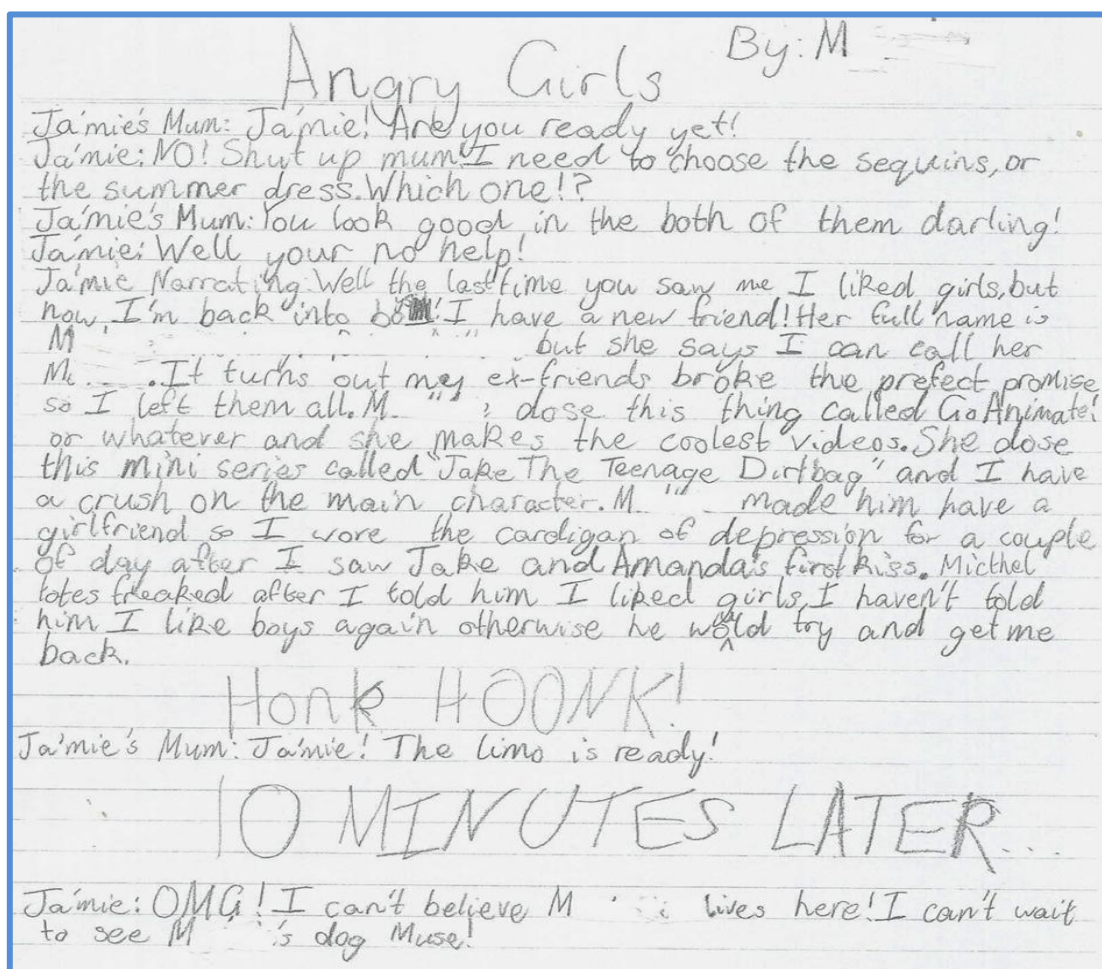 Angry Girls By: M
Ja'mie's Mum: Ja'mie! Are you ready yet!
Ja'mie: NO! Shut up mum! I need to choose the sequins, or
the summer dress. Which one!?
Ja'mie's Mum: You look good in the both of them darling!
Ja'mie: Well your no help!
Ja'mie Narrating: Well the last time you saw me I liked girls, but
now I'm back into I have a new friend! Her full name is
M but she says I can call her
M. It turns out my ex-friends broke the prefect promise
so I left them all. M dose this thing called GoAnimate!
or whatever and she makes the coolest videos. She dose
this mini series called "Jake The Teenage Dirtbag" and I have
a crush on the main character. M made him have a
girlfriend so I wore the cardigan of depression for a couple
of day after I saw Jake and Amanda's first kiss. Micthel
totes freaked after I told him I liked girls, I haven't told
him I like boys again otherwise he would try and get me
back.
Honk HOONK!
Ja'mie's Mum: Ja'mie! The limo is ready!
10 MINUTES LATER...
Ja'mie: OMG! I can't believe M lives here! I can't wait
to see M 's dog Muse!